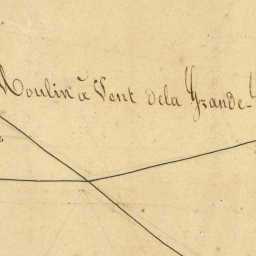 Moulin à Vent de la Grande-